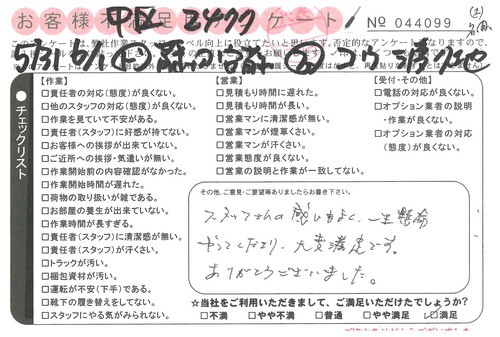 お客様不満足アンケート
No 044099
チェックリスト
【作業】
□責任者の対応(態度)が良くない。
□他のスタッフの対応(態度)が良くない。
□作業を見ていて不安がある。
□責任者(スタッフ)に好感が持てない。
□お客様への挨拶が出来ていない。
□ご近所への挨拶・気遣いが無い。
□作業開始前の内容確認がなかった。
□作業開始時間が遅れた。
□荷物の取り扱いが雑である。
□お部屋の養生が出来ていない。
□作業時間が長すぎる。
□責任者(スタッフ)に清潔感が無い。
□責任者(スタッフ)が汗くさい。
□トラックが汚い。
□梱包資材が汚い。
□運転が不安(下手)である。
□靴下の履き替えをしてない。
□スタッフにやる気がみられない。
【営業】
□見積もり時間に遅れた。
□見積もり時間が長い。
□営業マンに清潔感が無い。
□営業マンが煙草くさい。
□営業マンが汗くさい。
□営業態度が良くない。
□営業の説明と作業が一致してない。
【受付・その他】
□電話の対応が良くない。
□オプション業者の説明
・作業が良くない。
□オプション業者の対応
(態度)が良くない。
その他、ご意見・ご要望等ありましたらお書き下さい。
スタッフさんの感じもよく、一生懸命
やってくださり、大変満足です。
ありがとうございました。
☆当社をご利用いただきまして、ご満足いただけたでしょうか?
□不満 □やや不満 □普通 □やや満足 ☑満足